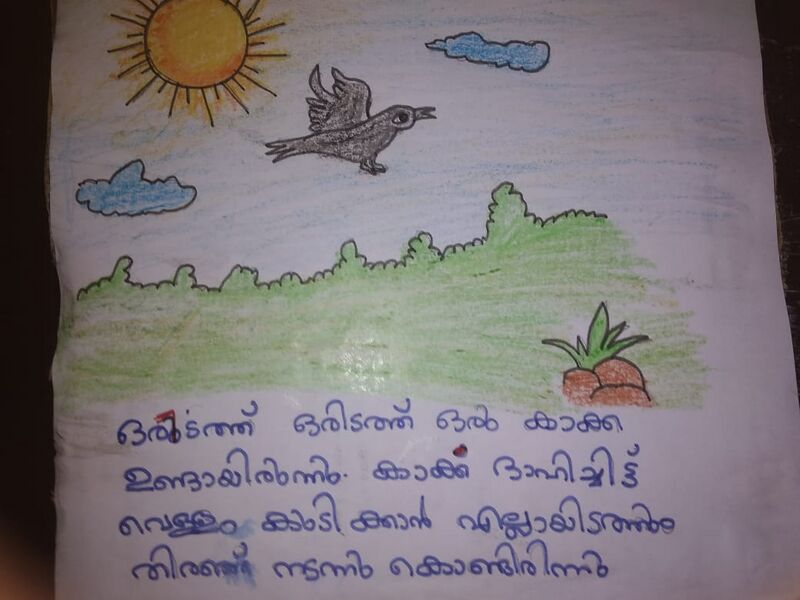 ഒരിടത്ത് ഒരിടത്ത് ഒരു കാക്ക
ഉണ്ടായിരുന്നു. കാക്ക ദാഹിച്ചിട്ട്
വെള്ളം കുടിക്കാൻ എല്ലായിടത്തും
തിരഞ്ഞ് നടന്നു കൊണ്ടിരിന്നു